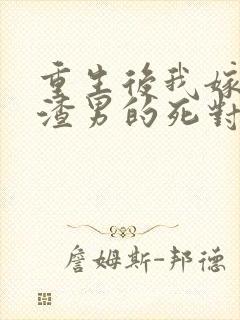 重生後我嫁
渣男的死對
詹姆斯-邦德